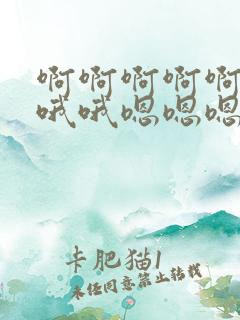 啊啊啊啊啊
哦哦嗯嗯嗯
卡肥猫1
未经同意禁止转载